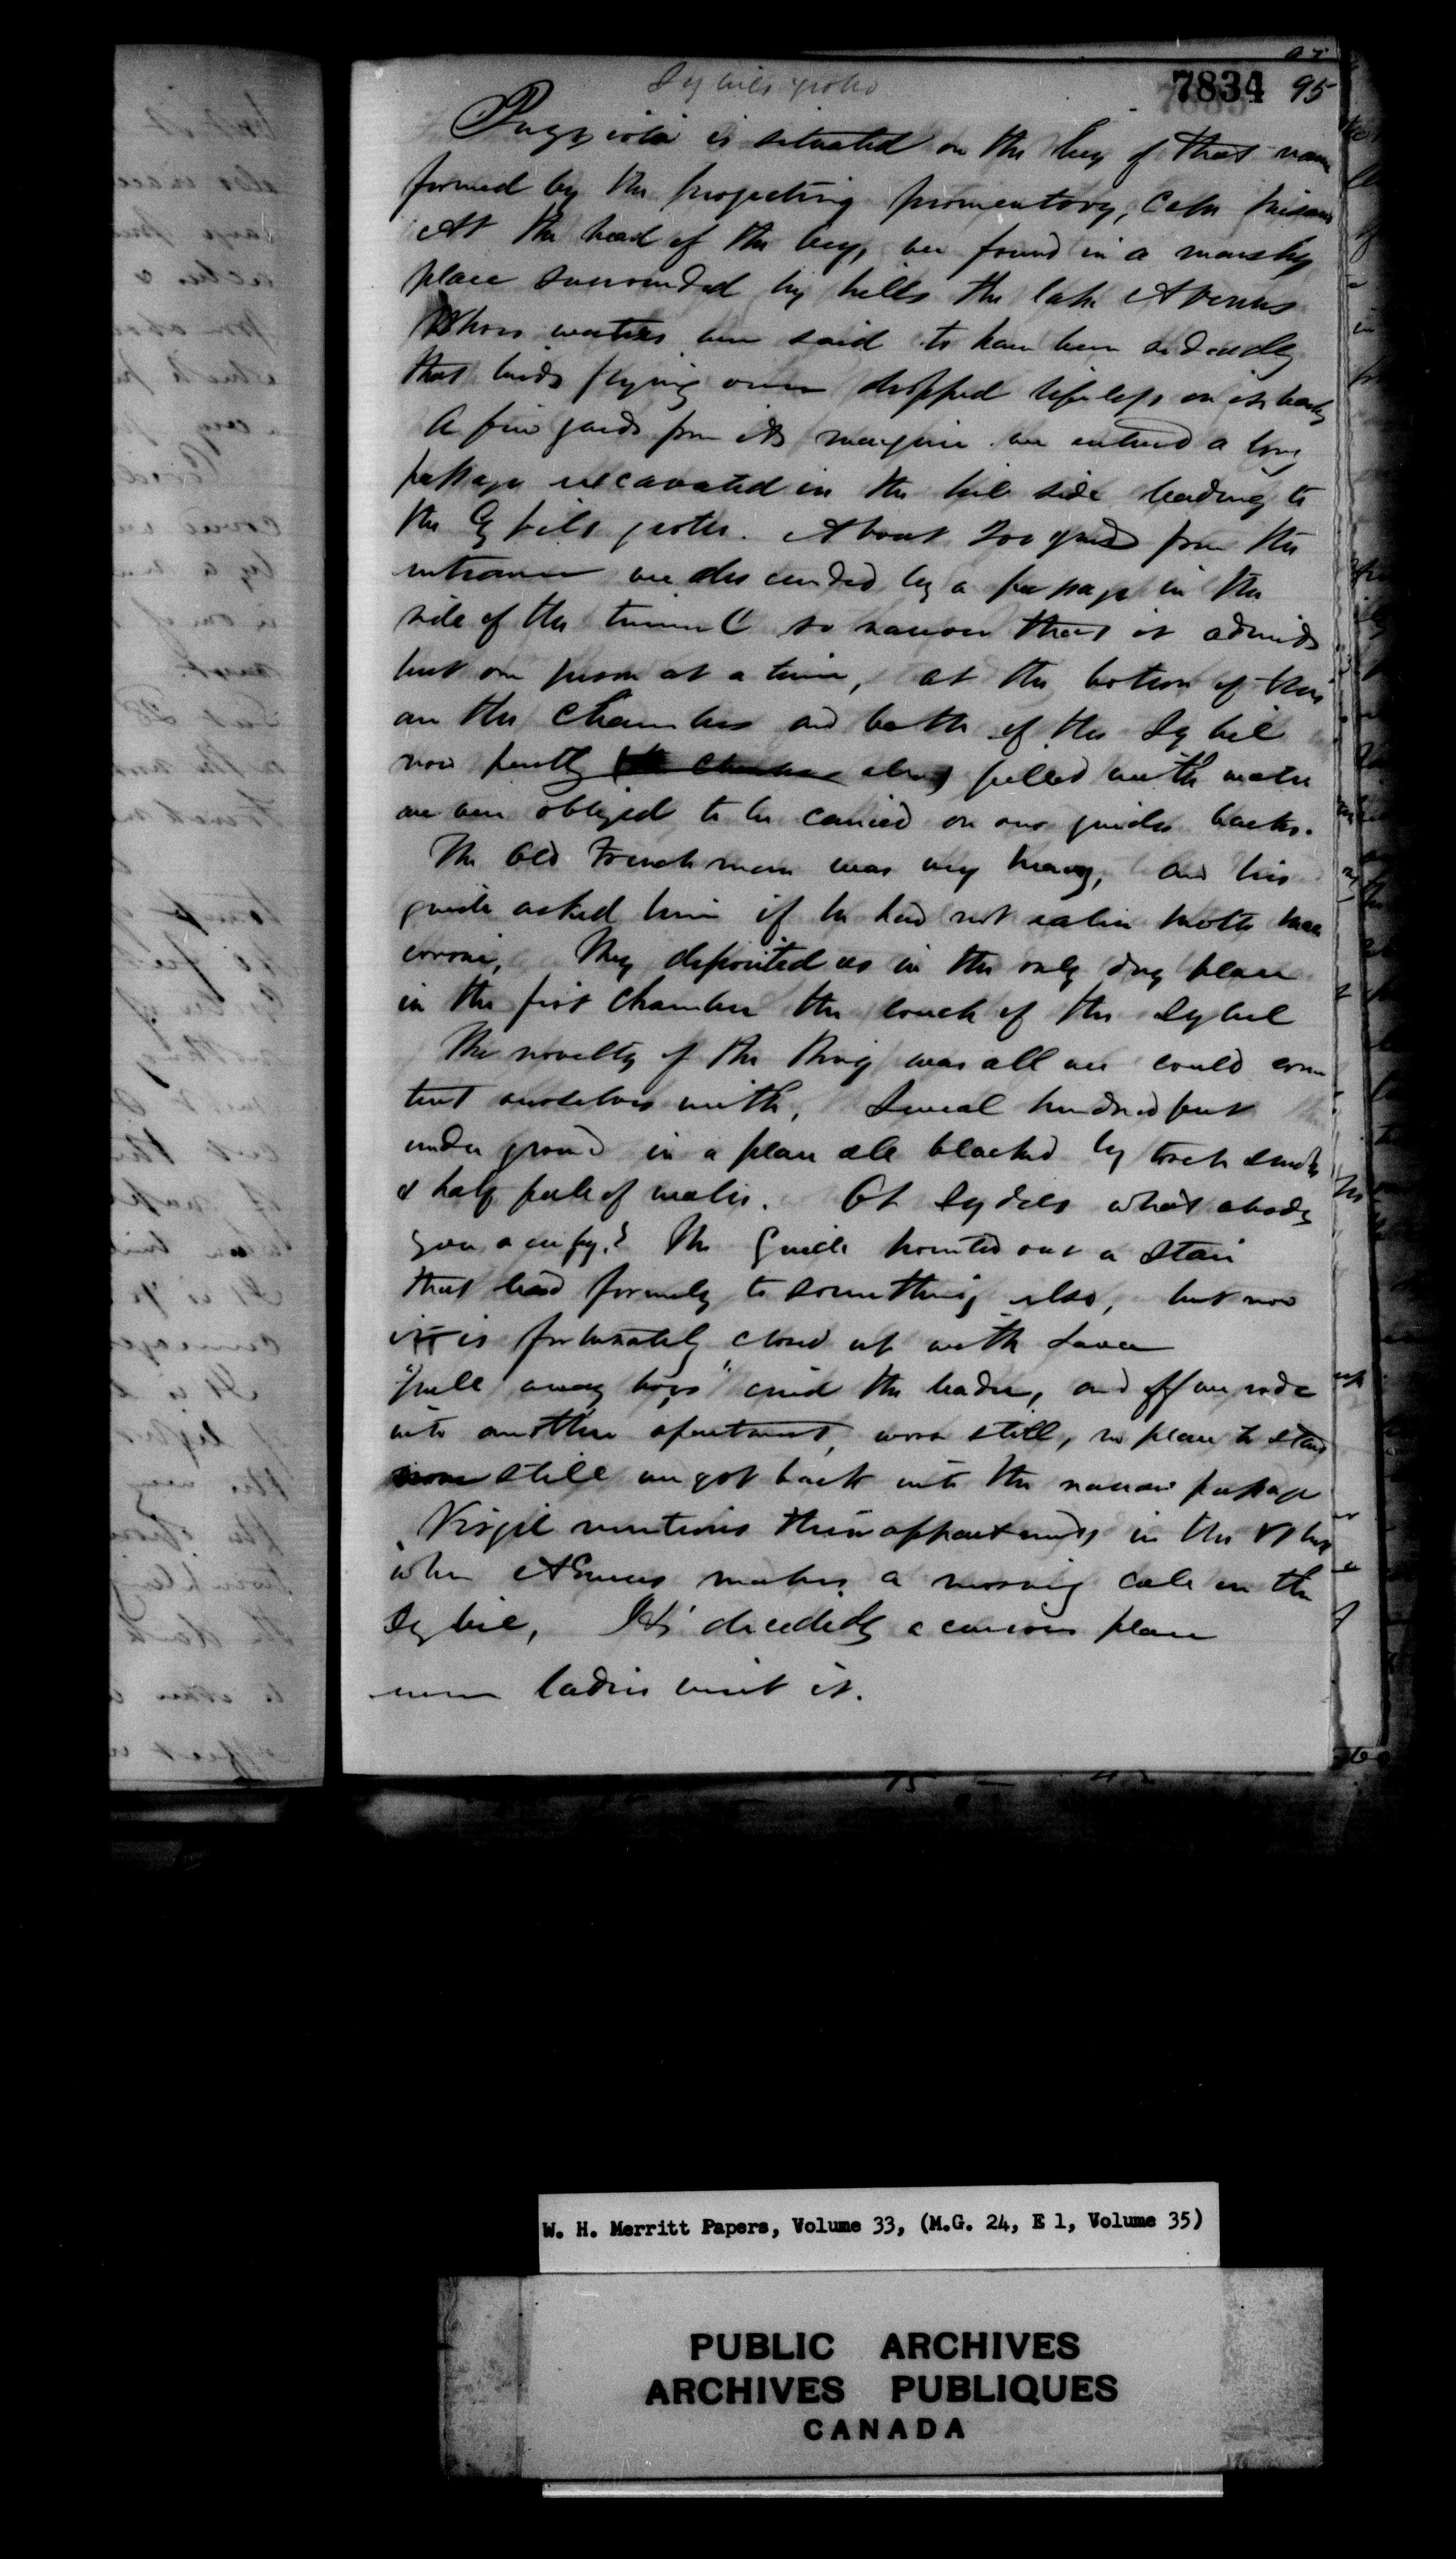 Sybils grotto
7834 95
Puzzioli is situated on the bay of that name
formed by the projecting promentory, Cape
At the head of the bay, we found in a marshy
place surrounded by hills the lake Avernus
Whose waters are said to have been so deadly
that birds flying over dropped lifeless on its
A few yards from its margin we entered a long
passage excavated in the hill side leading to
the Sybils grotto. About 200 yards from the
entrance we descended by a passage in the
side of the tunnel so narrow that it admits
but one person at a time, at the bottom of this
are the Chambers and bath of the Sybil
now partly filled with water
we were obliged to be carried on our guides backs.
The Old Frenchman was very heavy, and his
guide asked him if he had not eaten macca
roni, They deposited us in the only dry place
in the first Chamber the couch of the Sybil
The novelty of the thing was all we could con
tent ourselves with, Several hundred feet
under ground in a place all blacked by torch smoke
& half full of water. Oh Sybils what abode
you occupy? The Guide pointed out a Stair
that lead formerly to something else, but now
it is fortunately closed up with Lava
"pull away boys" cried the leader, and off we rode
into another apartment, worse still, no place to stand
still we got back into the narrow passage
Virgil mentions these appartments in the
when Æneus makes a morning call on the
Sybil, It's decidedly a curious place
ladies visit it.
W. H. Merritt Papers, Volume 33, (M.G. 24, E 1, Volume 35)
PUBLIC ARCHIVES
ARCHIVES PUBLIQUES
CANADA